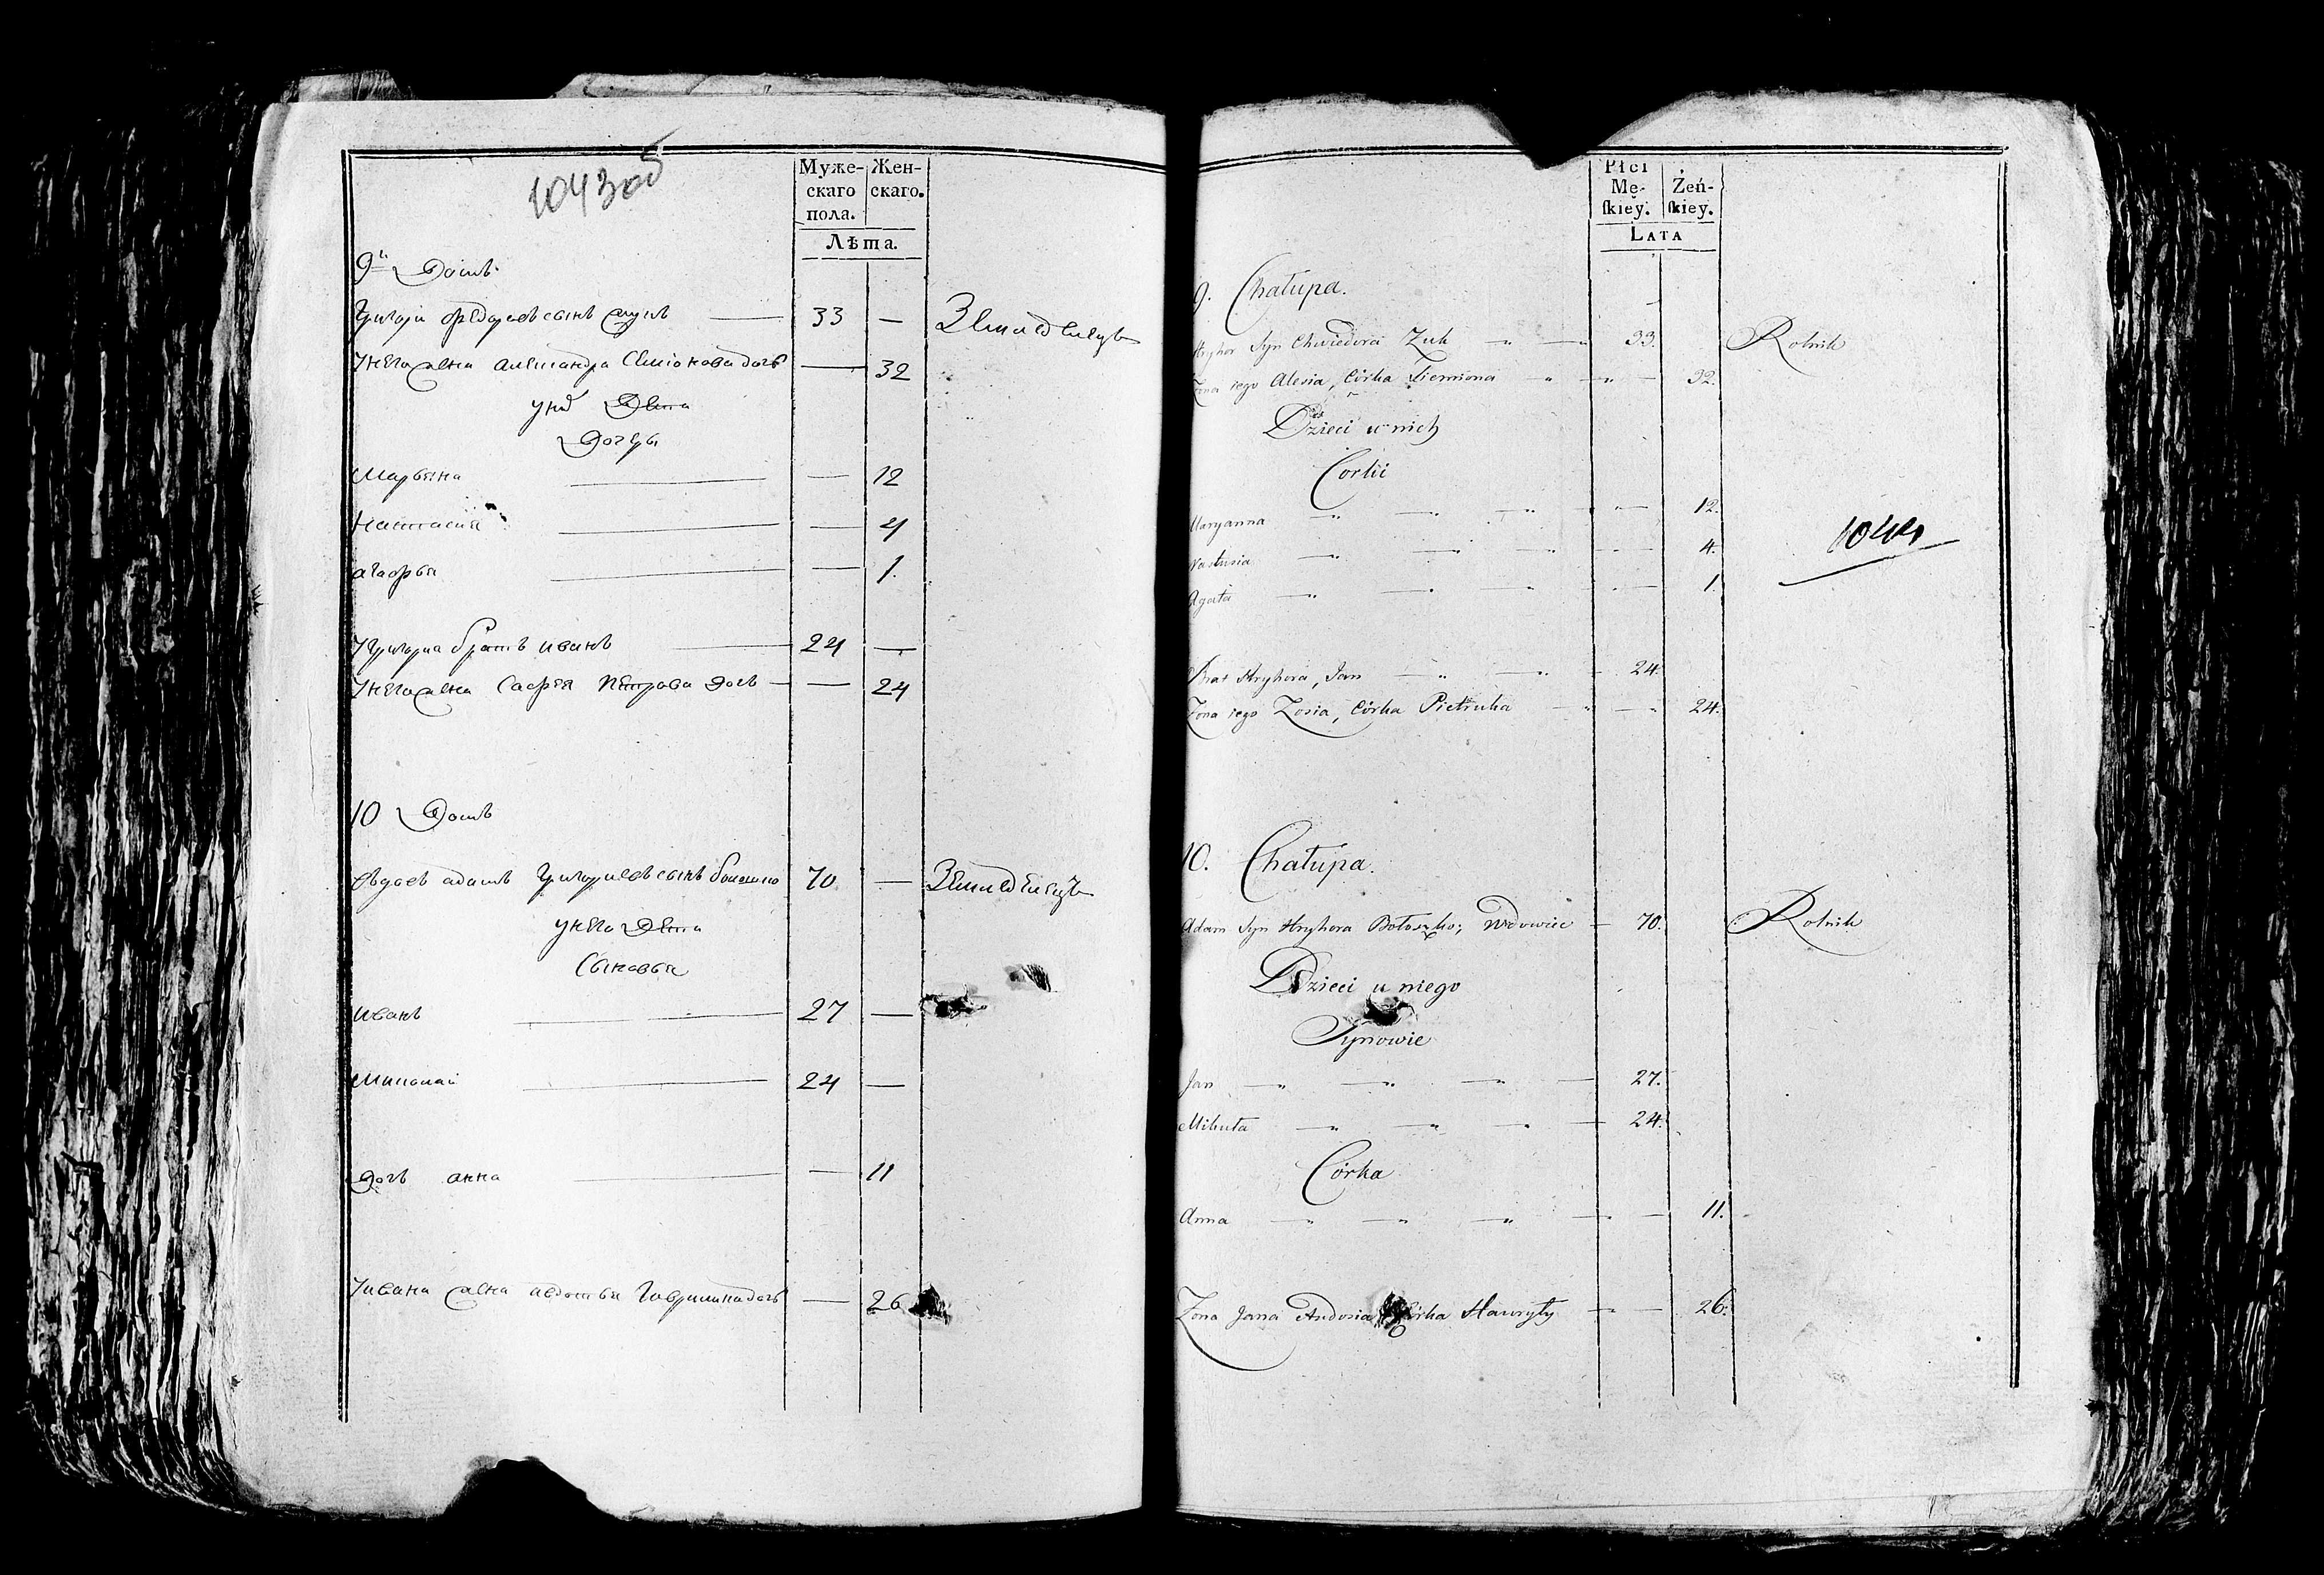 1043об
Муже-
скаго
пола.
Жен-
скаго.
Лѣта.
9й Домъ
Григори Федоровъ сынъ Жукъ 33 — Земледелецъ
У него жена Александра Семионова дочь — 32
у них Дети
Дочери
Марьяна — 12
Настасия — 4
Агафья — 1.
У Григориа братъ Иванъ 24 —
У него жена Софея Петрова дочь — 24
10 Домъ
Адамъ Григориевъ сынъ 70 — Земледелецъ
у него Дети
Сыновья
Иванъ 27 —
Миколай 24 —
Дочь Анна — 11
У Ивана жена Авдотья Гаврилина дочь — 26
Płci
Mę-
skiey.
Żeń-
skiey.
LATA
9. Chałupa.
Hryhor Syn Chwiedora Zuk 33. Rolnik
Zona iego Alesia, Córka Siemiona 32.
Dzieci u nich
Corki
Maryanna 12.
Nastusia 4.
Agata 1.
1044
Brat Hryhora, Jan 24.
Zona iego Zosia, Córka Pietruka 24.
10. Chałupa.
Adam Syn Hryhora Bołoszko; Wdowiec 70. Rolnik
Dzieci u niego
Synowie
Jan 27.
Mikuła 24.
Córka
Anna 11.
Zona Jana Audosia Córka Hawryły 26.